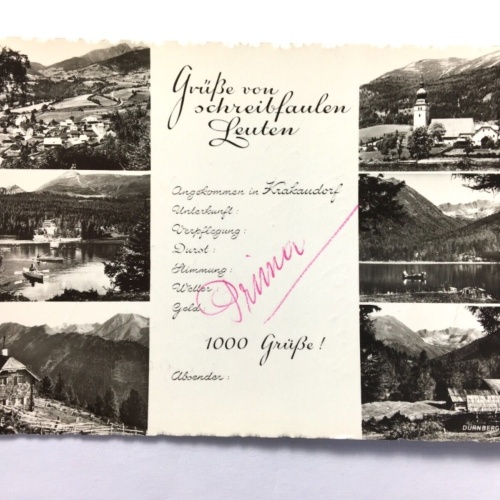 Grüße von
schreibfaulen
Leuten
Angekommen in Krakaudorf
Unterkunft :
Verpflegung :
Durst :
Stimmung :
Wetter :
Geld
Prima
1000 Grüße !
Absender :
DÜRNBERG